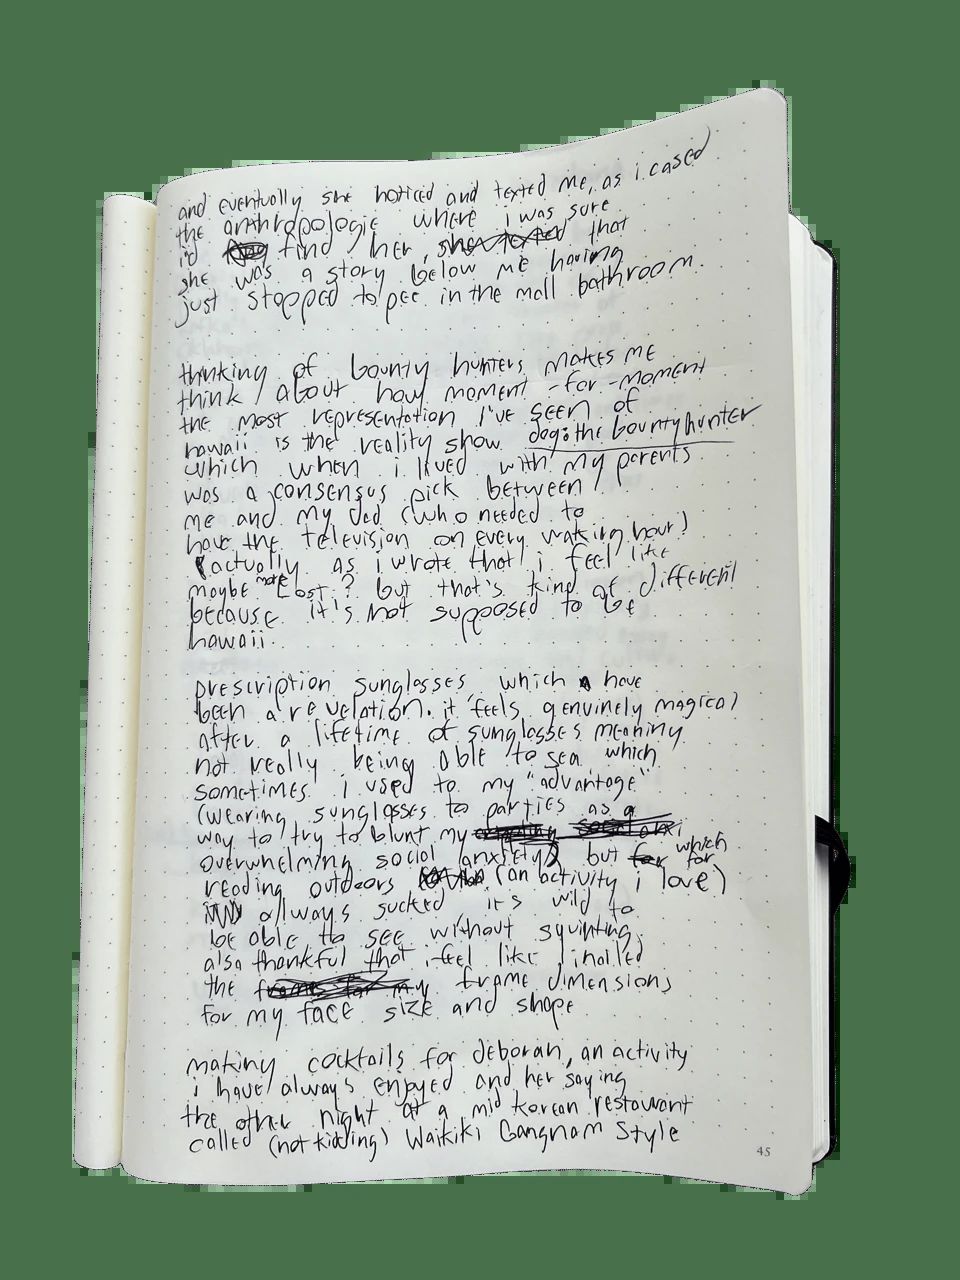 and eventually she noticed and texted me, as i cased
the anthropologie where i was sure
i'd find her, she texted that
she was a story below me having
just stopped to pee in the mall bathroom.
thinking of bounty hunters makes me
think about how moment-for-moment
the most representation i've seen of
hawaii is the reality show dog: the bounty hunter
which when i lived with my parents
was a consensus pick between
me and my dad (who needed to
have the television on every waking hour)
(actually as i wrote that i feel like
maybe more Lost? but that's kind of different
because it's not supposed to be
hawaii.
prescription sunglasses which have
been a revelation. it feels genuinely magical
after a lifetime of sunglasses meaning
not really being able to see which
sometimes i used to my "advantage"
(wearing sunglasses to parties as a
way to try to blunt my
overwhelming social anxiety) but for which
reading outdoors (an activity i love) for
always sucked. it's wild to
be able to see without squinting.
also thankful that i feel like i nailed
the frames for my frame dimensions
for my face size and shape
making cocktails for deborah, an activity
i have always enjoyed and her saying
the other night at a mid korean restaurant
called (not kidding) Waikiki Gangnam Style
45